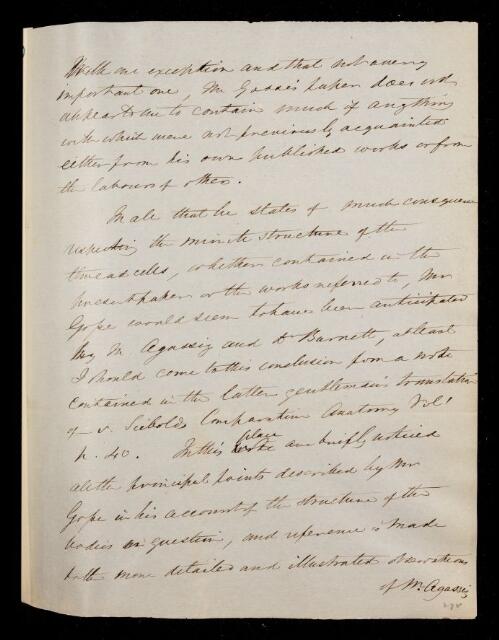 With one exception and that not a very
important one, Mr Gosse's paper does not
appear to me to contain much if anything
with which we were not previously acquainted
either from his own published works or from
the labours of others.
In all that he states of much consequence
respecting the minute structure of the
thread cells, whether contained in the
present paper or the works referred to, Mr
Gosse would seem to have been anticipated
by M. Agassiz and Dr Burnett, at least
I should come to this conclusion from a note
contained in the latter gentleman's translation
of v. Siebold's Comparative Anatomy Vol 1
p. 40. In this place are briefly noticed
all the principal points described by Mr
Gosse in his account of the structure of the
bodies in question, and reference is made
to the more detailed and illustrated observations
of M. Agassiz